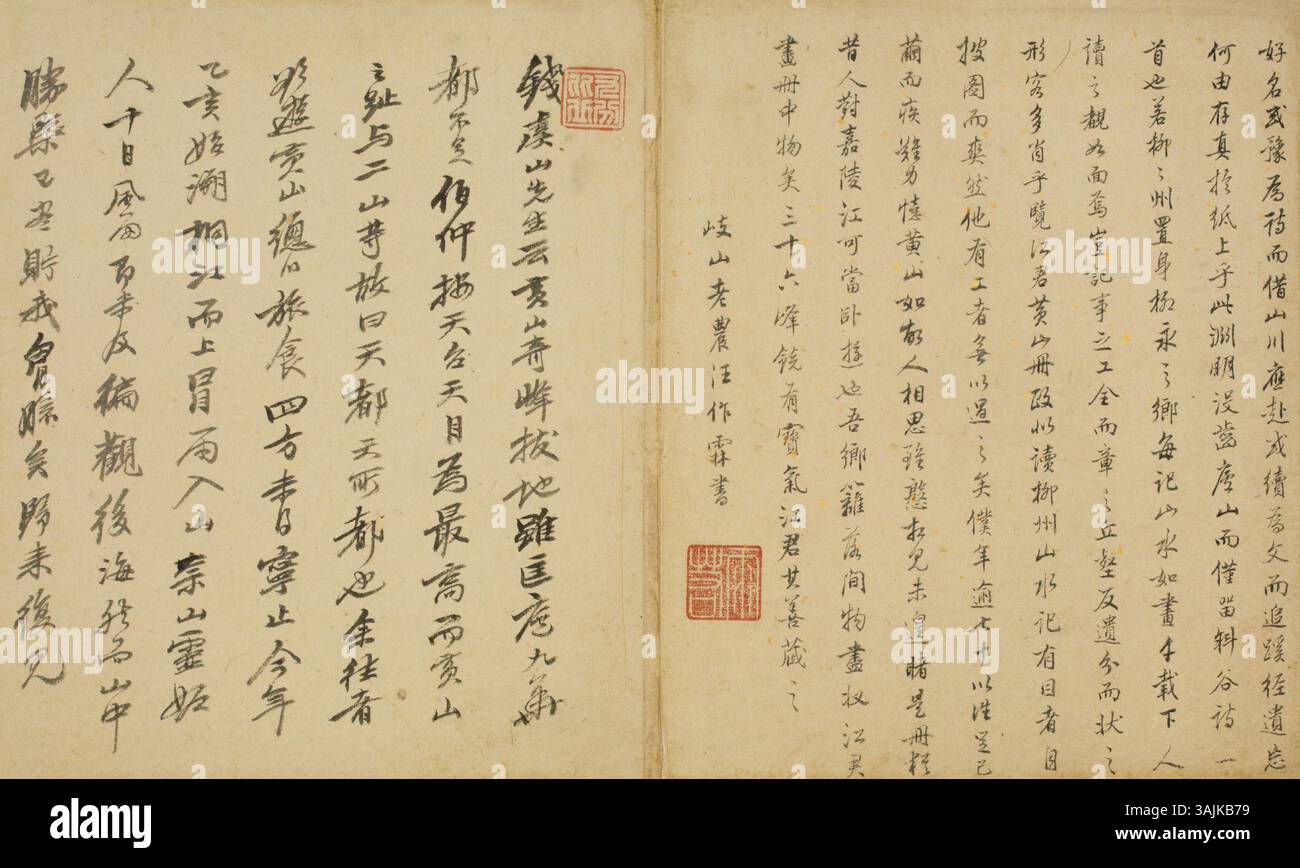 好名或豫為詩而借山川應赴或續為文而追蹊徑遺忘
何由存真於紙上乎此淵明沒齒廬山而僅畱斜谷詩一
首也若柳柳州置身柳永之鄉每記山水如畫千載下人
讀之覩如面焉豈記事之工全而章之丘壑反遺分而狀之
形容多肖乎覽江君黃山冊政似讀柳州山水記有目者自
披圖而爽然他有工者無以過之矣僕年逾七十以往足已
繭而疾難另憶黃山如故人相思雖慇相見未遑睹是冊輕
昔人對嘉陵江可當卧遊也吾鄉籬落間物盡收江君
畫冊中物矣三十六峰饒有寶氣江君其善藏之
岐山老農汪作霖書
錢虞山先生云黃山奇峰拔地雖匡廬九華
都不足伯仲按天台天目為最高而黃山
之趾与二山等故曰天都天所都也余往者
欲遊黃山總以旅食四方未曾寧止今年
乙亥始溯桐江而上冒雨入山奈山靈妬
人十日風雨即未及徧觀後海然而山中
勝槩已盡貯我胷臆矣歸來復見
alamy
Image ID: 3AJKB79
www.alamy.com